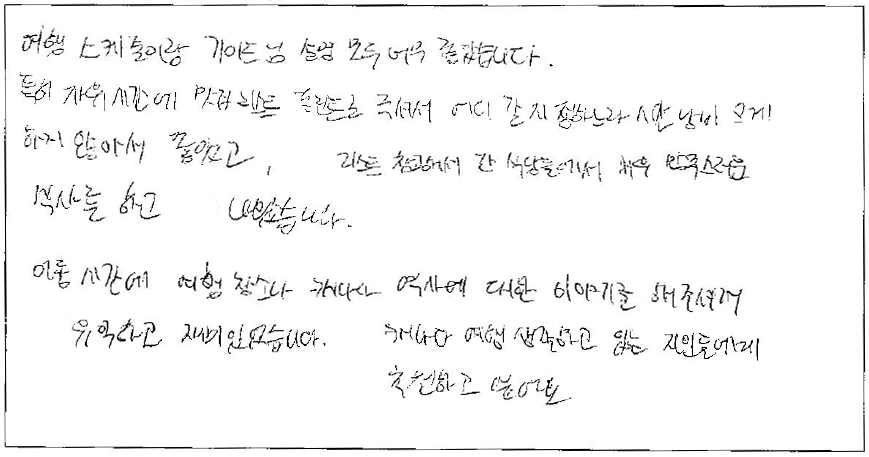 여행 스케쥴이랑 가이드님 설명 모두 너무 좋았습니다.
특히 자유시간에 맛집 리스트 프린트로 주셔서 어디 갈지 정하느라 시간 낭비 크게
하지 않아서 좋았고, 리스트 참고해서 간 식당들에서 매우 만족스러운
식사를 하고 나왔습니다.
이동 시간에 여행 장소나 캐나다 역사에 대한 이야기를 해주셔서
유익하고 재미있었습니다. 캐나다 여행 생각하고 있는 지인들에게
추천하고 싶어요